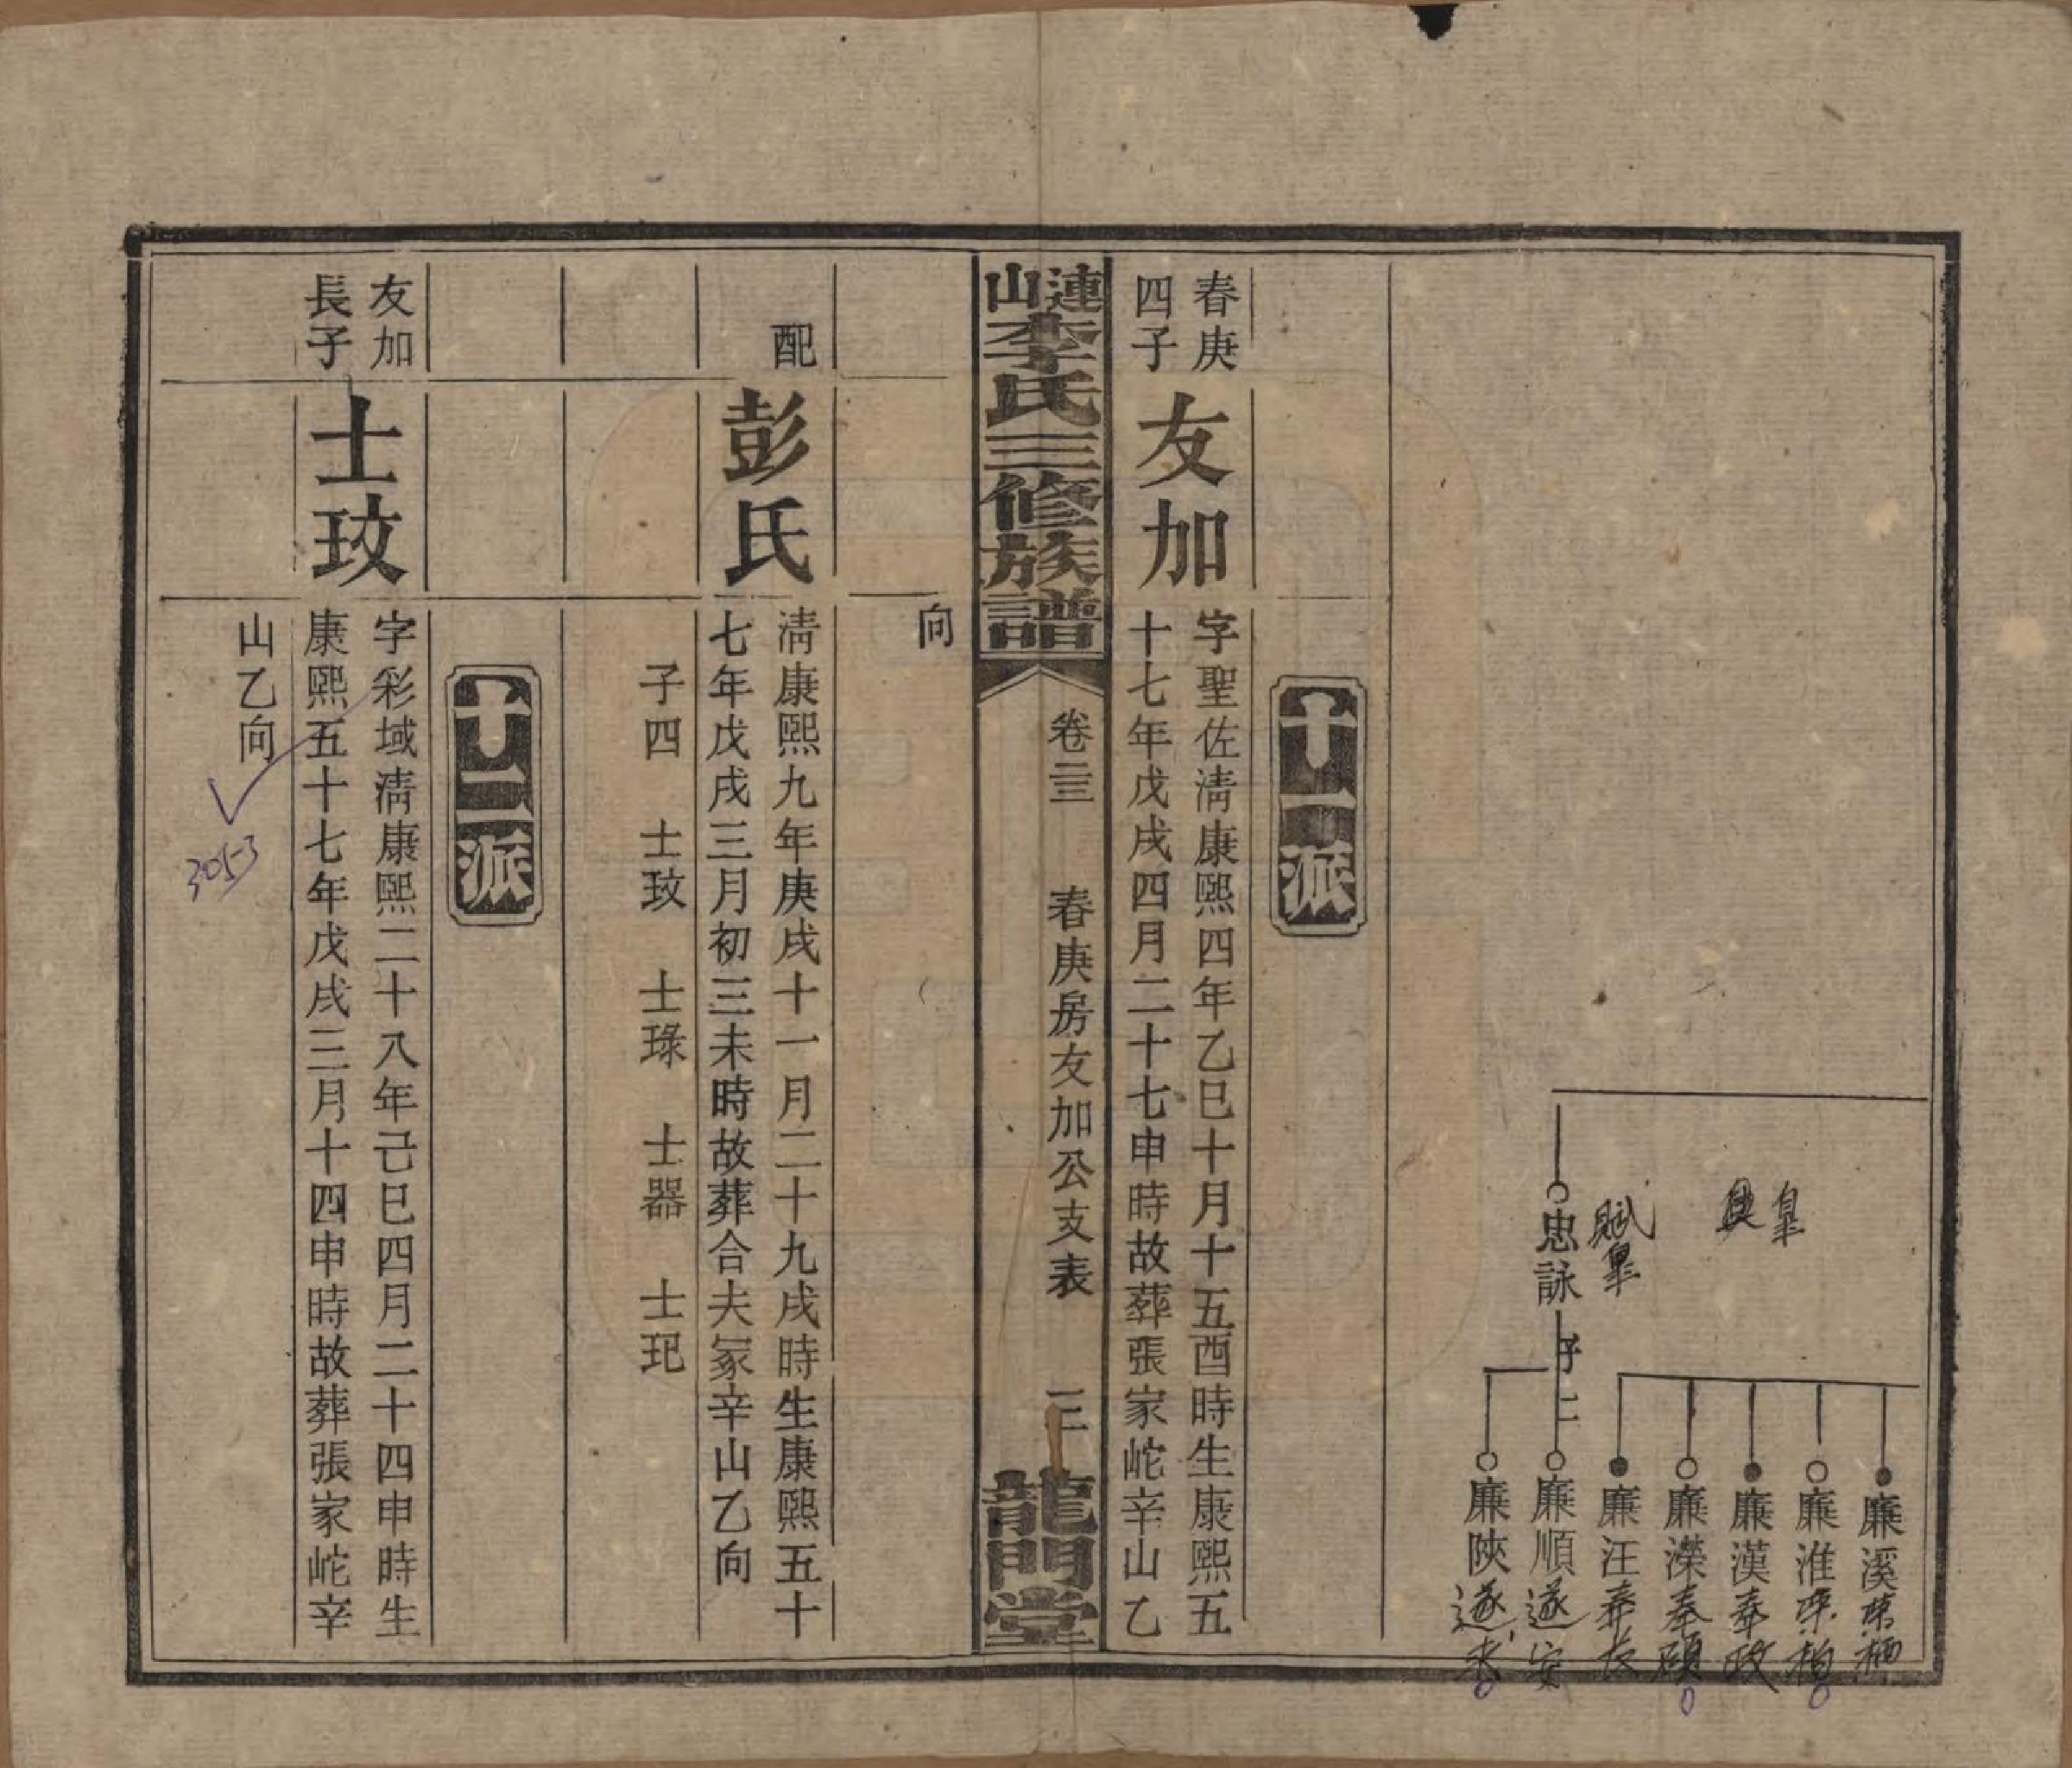 興皇
賦皇
忠詠
子二
廉溪
廉淮
廉漢奉政
廉濴奉碩
廉汪奉長
廉順遂安
廉陝遂
十一派
春庚
四子
友加
字聖佐淸康熙四年乙巳十月十五酉時生康熙五
十七年戊戌四月二十七申時故葬張家岮辛山乙
漣山李氏三修族譜
卷三
春庚房友加公支表
三
龍門堂
向
配
彭氏
淸康熙九年庚戌十一月二十九戌時生康熙五十
七年戊戌三月初三未時故葬合夫冢辛山乙向
子四 士玟 士琭 士器 士玘
十二派
友加
長子
士玟
字彩域淸康熙二十八年己巳四月二十四申時生
康熙五十七年戊戌三月十四申時故葬張家岮辛
山乙向
305-3